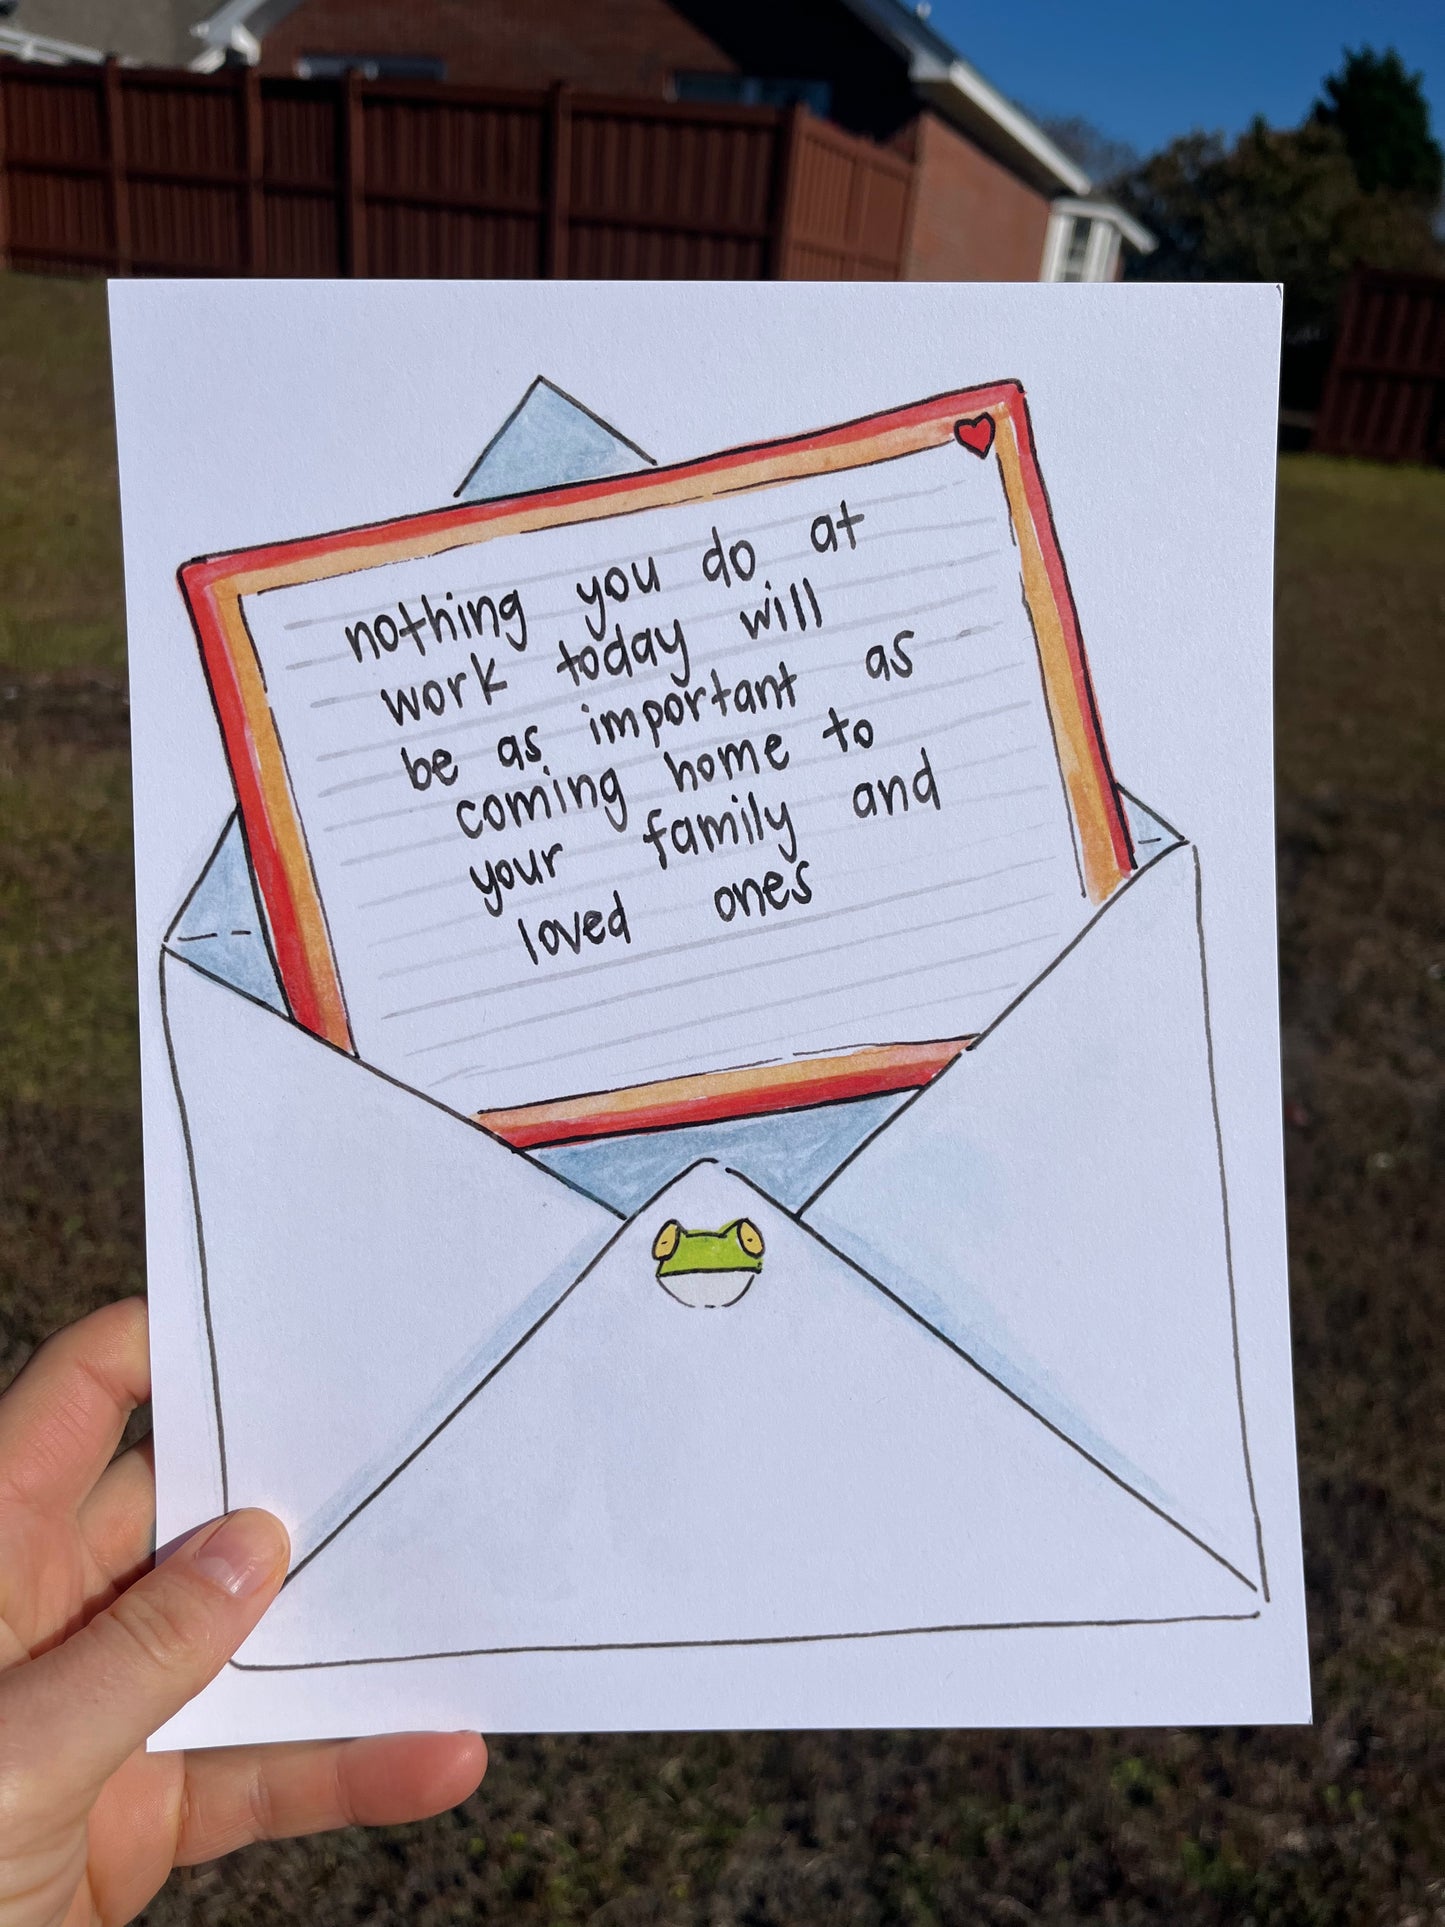 nothing you do at
work today will
be as important as
coming home to
your family and
loved ones